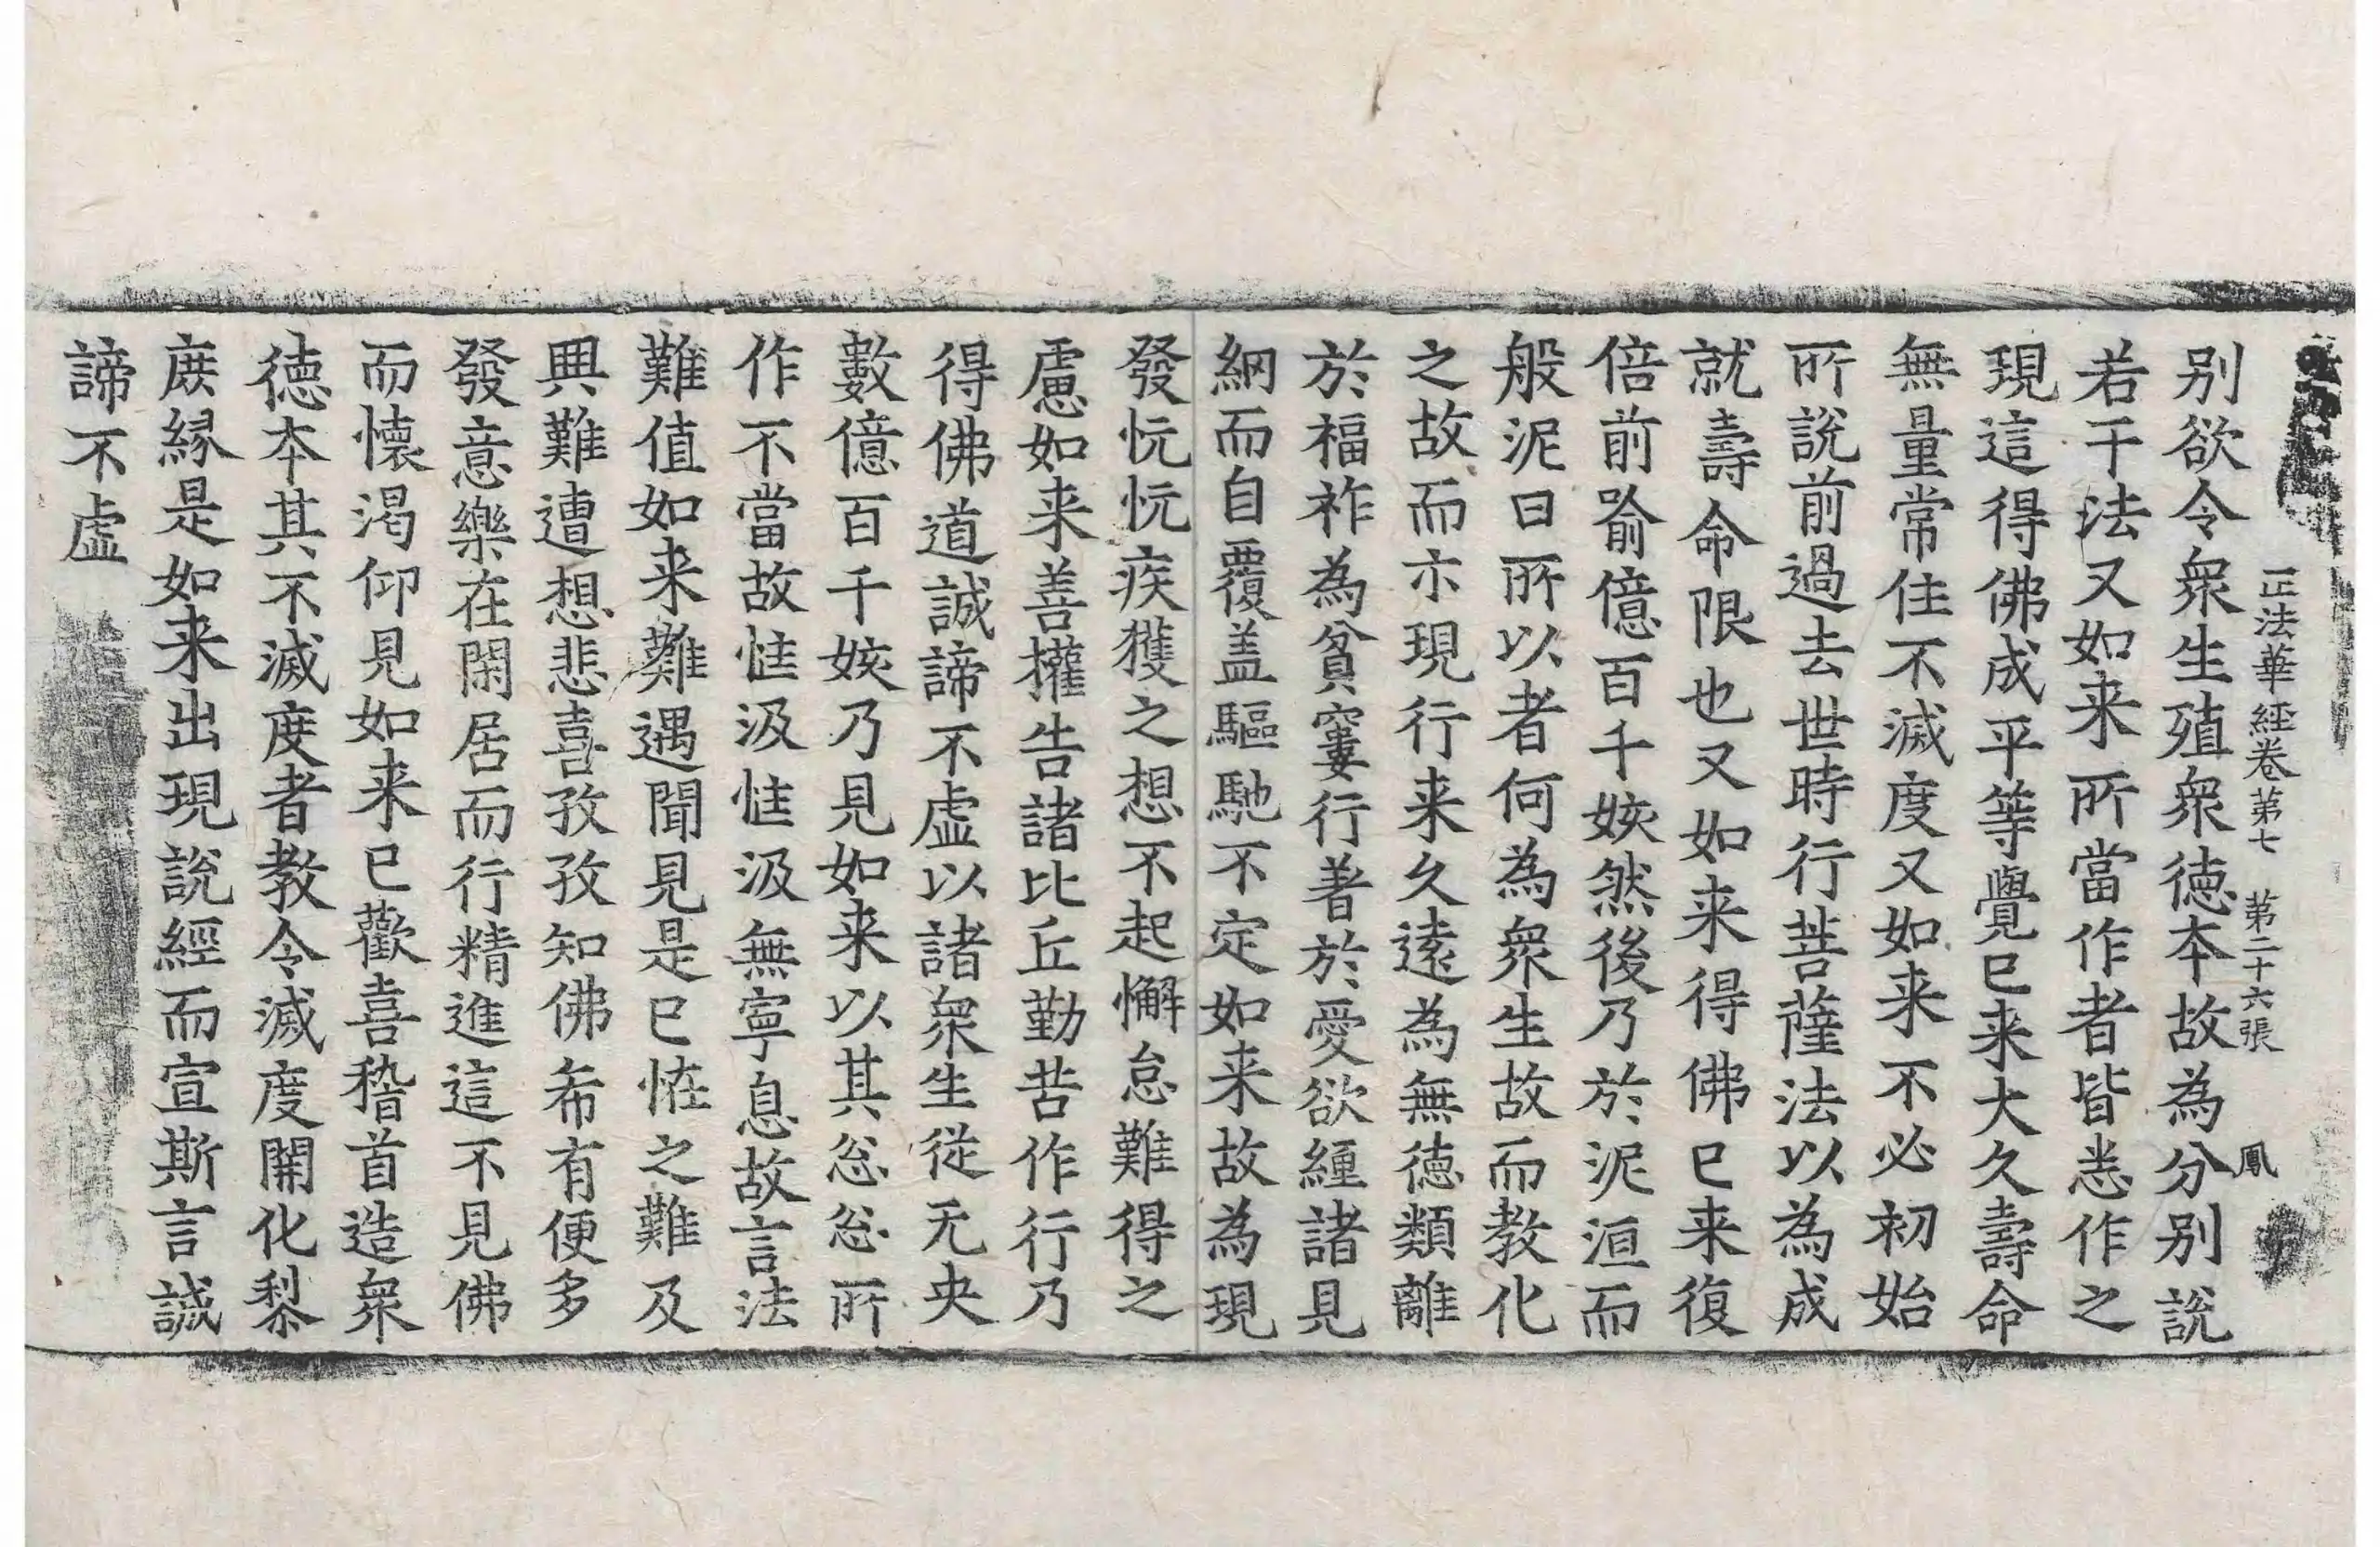 正法華經卷第七 第二十六張 鳳
別欲令衆生殖衆德本故為分別說
若干法又如来所當作者皆悉作之
現這得佛成平等覺已来大久壽命
無量常住不滅度又如来不必初始
所說前過去世時行菩薩法以為成
就壽命限也又如来得佛已来復
倍前喻億百千姟然後乃於泥洹而
般泥曰所以者何為衆生故而教化
之故而亦現行来久遠為無德類離
於福祚為貧窶行著於愛欲纏諸見
網而自覆盖驅馳不定如来故為現
發忨忨疾獲之想不起懈怠難得之
慮如来善權告諸比丘勤苦作行乃
得佛道誠諦不虛以諸衆生從无央
數億百千姟乃見如来以其忩忩所
作不當故恇汲恇汲無寧息故言法
難值如来難遇聞見是已恠之難及
興難遭想悲喜孜孜知佛希有便多
發意樂在閑居而行精進這不見佛
而懷渴仰見如来已歡喜稽首造衆
德本其不滅度者教令滅度開化黎
庶緣是如来出現說經而宣斯言誠
諦不虛